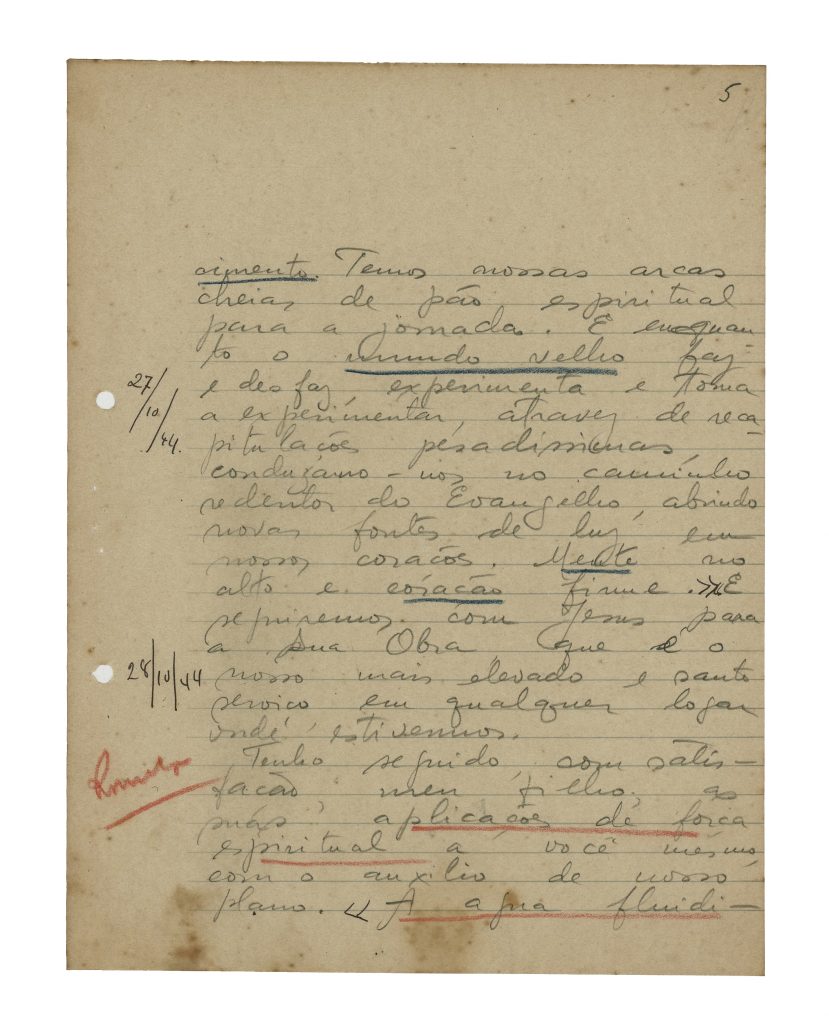 5
cimento. Temos nossas arcas
cheias de pão espiritual
para a jornada. E enquan
to o mundo velho faz
e desfaz, experimenta e torna
a experimentar, atravez de reca-
pitulações pesadissimas,
conduzamo-nos no caminho
redentor do Evangelho, abrindo
novas fontes de luz em
nossos corações. Mente no
alto e coração firme. >> E
seguiremos com Jesus para
a Sua Obra, que é o
nosso mais elevado e santo
serviço em qualquer logar
onde estivermos.
Tenho seguido, com satis-
fação meu filho, as
suas aplicações de força
espiritual a você mesmo
com o auxilio de nosso
plano. << A agua fluidi-
27/10/44.
28/10/44